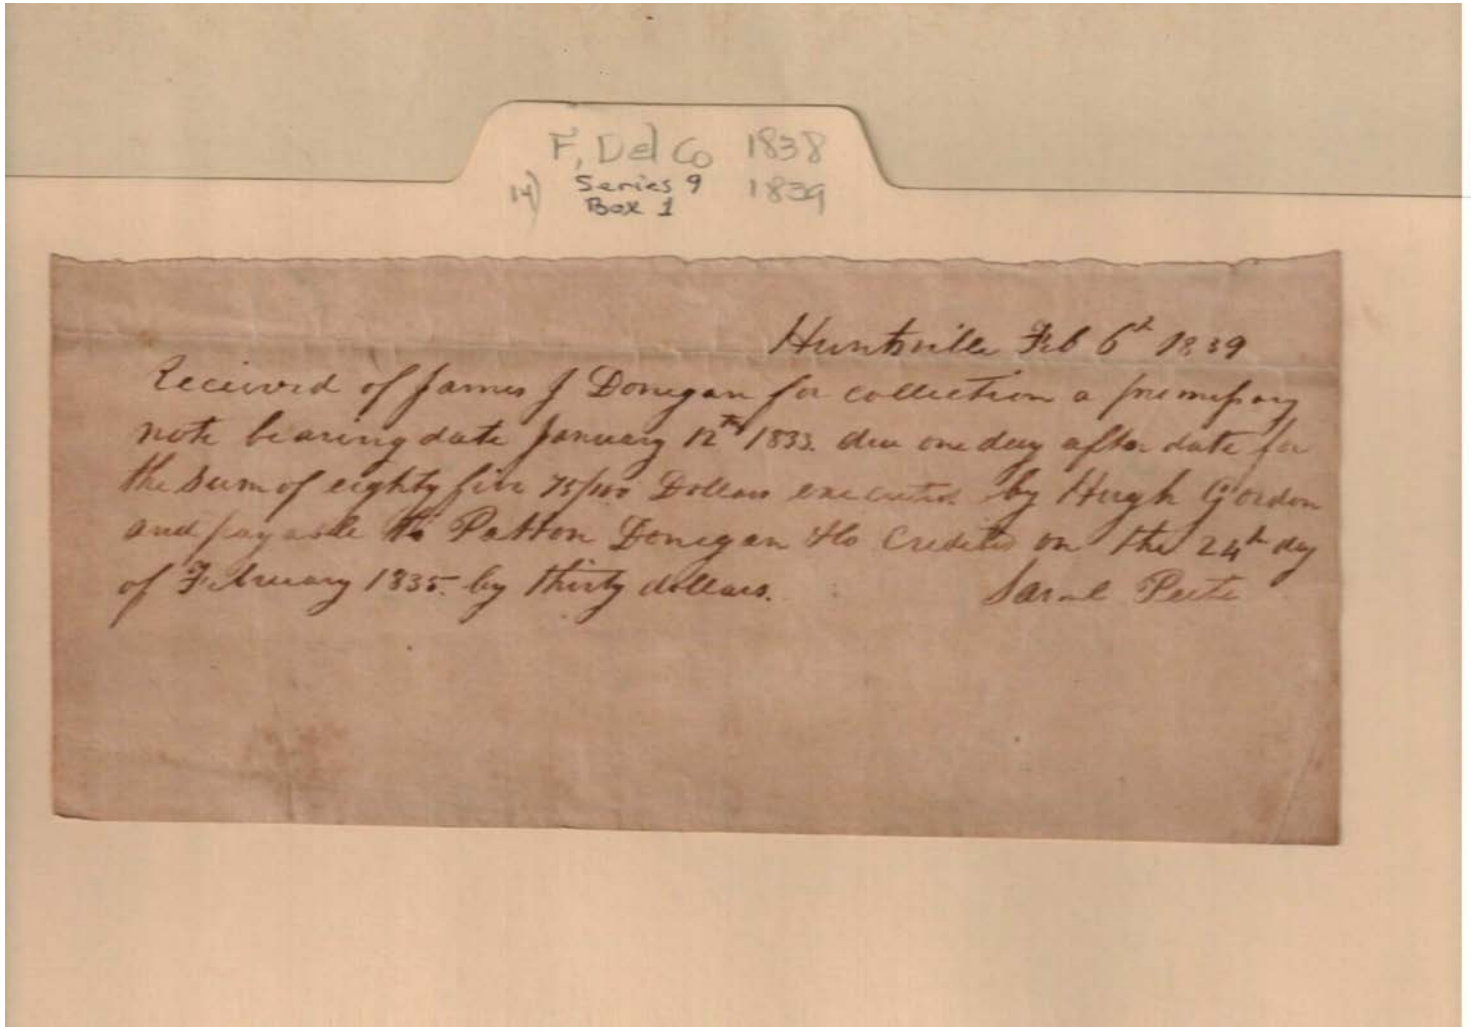 F, Del Co 1838
14) Series 9 1839
Box 1
Huntsville Feb 6th 1839
Received of James J Donegan for collection a promissory
note bearing date January 12th 1833. due one day after date for
the sum of eighty five 75/100 Dollars executed by Hugh Gordon
and payable to Patton Donegan & Co Credited on the 24th day
of February 1835. by thirty dollars.
Peete